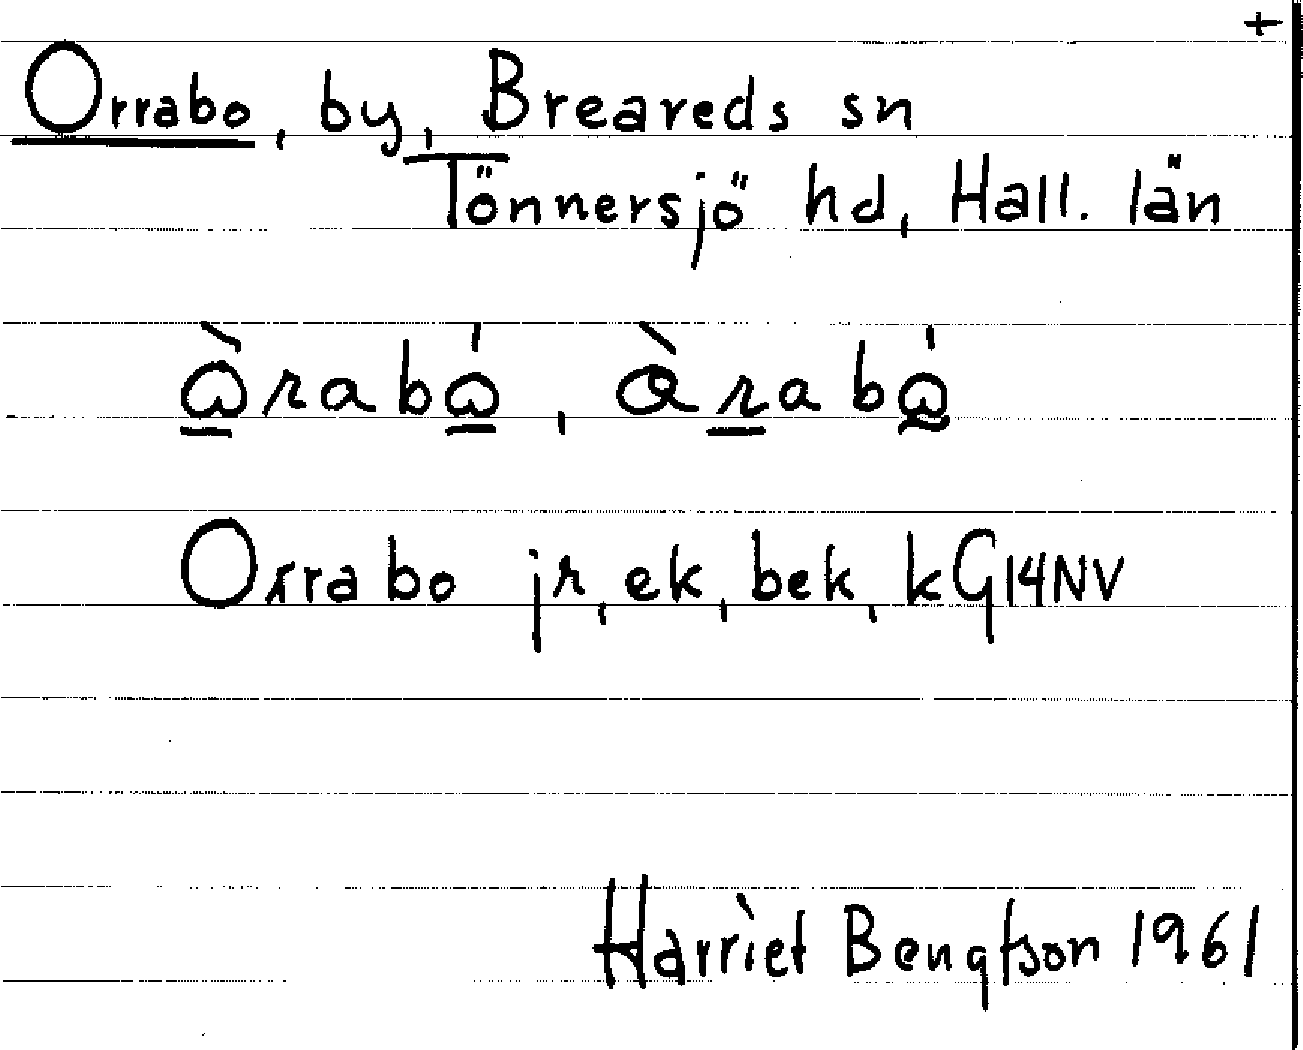 +
Orrabo, by, Breareds sn
Tönnersjö hd, Hall. län
ɷ̀rabɷ́, àrabɷ̀
Orrabo jr, ek, bek, kG14NV
Harriet Bengtson 1961